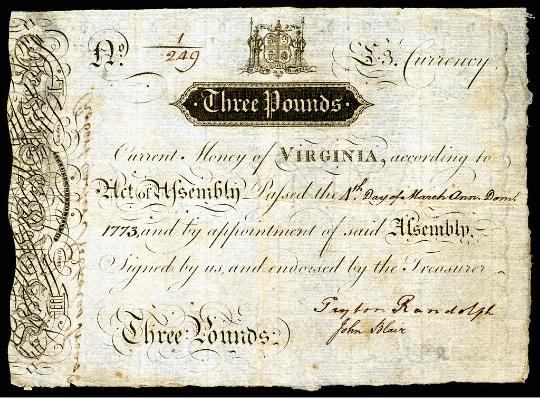 No. 1/249 £3. Currency
Three Pounds
Current Money of VIRGINIA, according to
Act of Assembly Passed the 4th. Day of March Ann. Dom.
1773, and by appointment of said Assembly.
Signed by us, and endorsed by the Treasurer
Three Pounds:
Peyton Randolph
John Blair